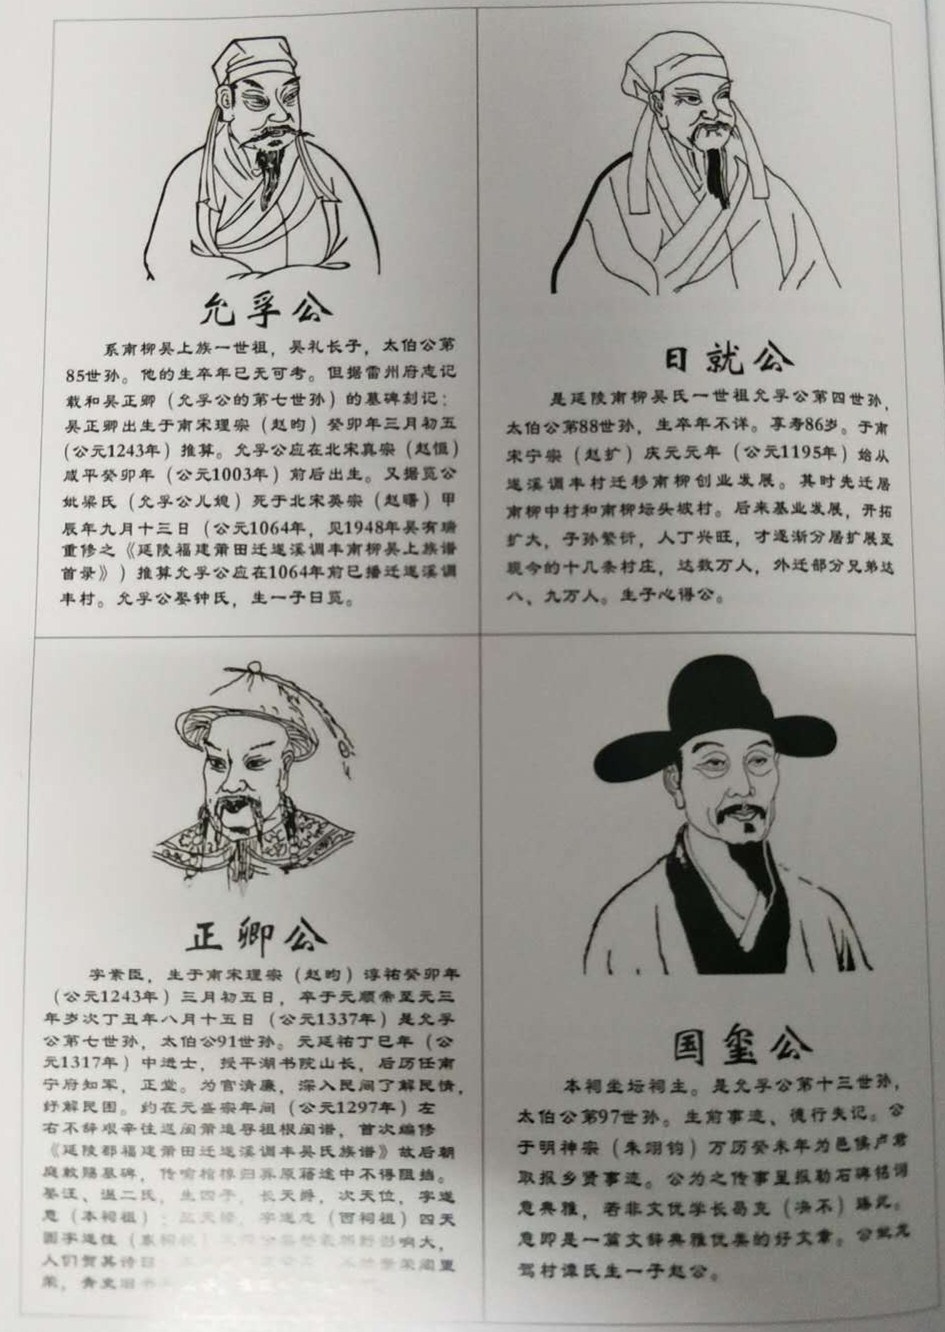 允孚公
系南柳吴上族一世祖，吴礼长子，太伯公第
85世孙。他的生卒年已无可考。但据雷州府志记
载和吴正卿（允孚公的第七世孙）的墓碑刻记：
吴正卿出生于南宋理宗（赵昀）癸卯年三月初五
(公元1243年）推算。允孚公应在北宋真宗（赵恒）
咸平癸卯年（公元1003年）前后出生。又据觅公
妣梁氏（允孚公儿媳）死于北宋英宗（赵曙）甲
辰年九月十三日（公元1064年，见1948年吴有瑞
重修之《延陵福建莆田迁遂溪调丰南柳吴上族谱
首录》）推算允孚公应在1064年前已播迁遂溪调
丰村。允孚公娶钟氏，生一子日觅。
日就公
是延陵南柳吴氏一世祖允孚公第四世孙，
太伯公第88世孙，生卒年不详。享寿86岁。于南
宋宁宗（赵扩）庆元元年（公元1195年）始从
遂溪调丰村迁移南柳创业发展。其时先迁居
南柳中村和南柳坛头坡村。后来基业发展，开拓
扩大，子孙繁衍，人丁兴旺，才逐渐分居扩展至
现今的十几条村庄，达数万人，外迁部分兄弟达
八、九万人。生子心得公。
正卿公
字素臣，生于南宋理宗（赵昀）淳祐癸卯年
（公元1243年）三月初五日，卒于元顺帝至元三
年岁次丁丑年八月十五日（公元1337年）是允孚
公第七世孙，太伯公91世孙。元延祐丁巳年（公
元1317年）中进士，授平湖书院山长，后历任南
宁府知军，正堂。为官清廉，深入民间了解民情，
纾解民困。约在元盛宗年间（公元1297年）左
右不辞艰辛往返闽莆追寻祖根闽谱，首次编修
《延陵郡福建莆田迁遂溪调丰吴氏族谱》故后朝
庭敕赐墓碑，传喻棺椁归葬原籍途中不得阻挡。
娶汪、温二氏，生四子，长天爵，次天位，字遂
意（本祠祖）；三天禄，字遂志（西祠祖）四天
圆字遂性（东祠祖）影响大，
人们贺其诗曰
国玺公
本祠坐坛祠主。是允孚公第十三世孙，
太伯公第97世孙。生前事迹、德行失记。公
于明神宗（朱翊钧）万历癸未年为邑侯卢君
取报乡贤事迹。公为之传事呈报勒石碑铭词
意典雅，若非文优学长曷克（决不）臻此。
意即是一篇文辞典雅优美的好文章。公娶龙
驾村谭氏生一子赵公。